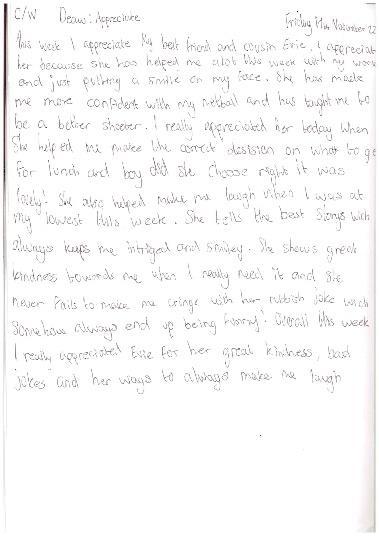 C/W Deaw: Appreciatee Friday 11th November 22
This week I appreciate My best friend and cousin Evie, I appreciate
her because she has helped me alot this week with my work
and just putting a smile on my face. She has made
me more confident with my netball and has taught me to
be a better shooter. I really appreciated her today when
She helped me make the correct desision on what to ge
for lunch and boy did she choose right it was
lovely! She also helped make me laugh when I was at
My lowest this week. She tells the best storys wich
always keeps me intriged and smiley. She shows great
kindness towards me when I really need it and she
never fails to make me cringe with her rubbish joke wich
somehow always end up being funny! Overall this week
I really appreciated Evie for her great kindness, bad
jokes and her ways to always make me laugh